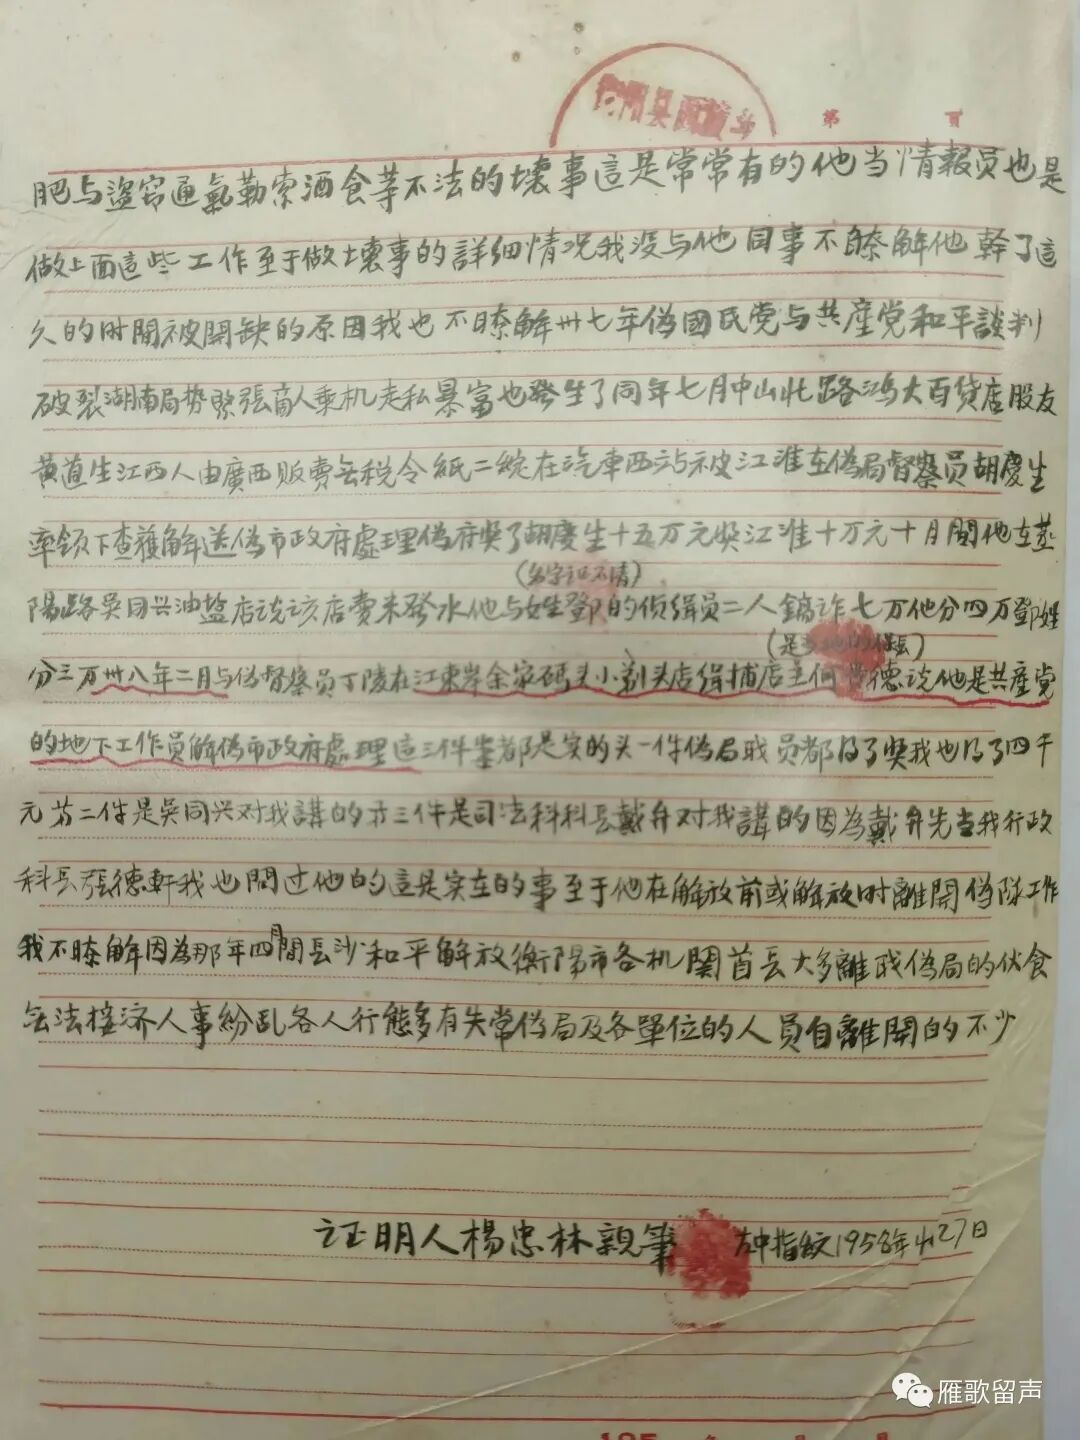 第 頁
肥与盜窃通氣勒索酒食等不法的壞事這是常常有的他当情報员也是
做上面這些工作至于做壞事的詳細情况我没与他同事不暸解他幹了這
久的时間被開缺的原因我也不暸解卅七年偽國民党与共産党和平談判
破裂湖南局势緊張商人乘机走私暴富也發生了同年七月中山北路鴻大百貨店股友
黄道生江西人由廣西販賣無税令紙二綻在汽車西站被江淮在偽局督察员胡慶生
率领下查獲解送偽市政府處理偽府奖了胡慶生十五万元奖江淮十万元十月間他在蒸
(名字记不清)
陽路吴同兴油盐店说该店賣米發水他与姓鄧的侦缉员二人鎬诈七万他分四万鄧姓
(是当地的保長)
分三万卅八年二月与偽督察员丁陵在江東岸余家码头小剃头店缉捕店主何 德说他是共産党
的地下工作员解偽市政府處理這三件案都是实的头一件偽局职员都得了奖我也得了四千
元芀二件是吴同兴对我講的芀三件是司法科科長戴弁对我講的因為戴弁先当我行政
科長張德軒我也問过他的這是实在的事至于他在解放前或解放时離開偽隊工作
我不暸解因為那年四月間長沙和平解放衡陽市各机関首長大多離职偽局的伙食
無法接济人事紛乱各人行態多有失常偽局及各單位的人員自離開的不少
证明人楊忠林親筆 左中指紋1958年4月27日
雁歌留声